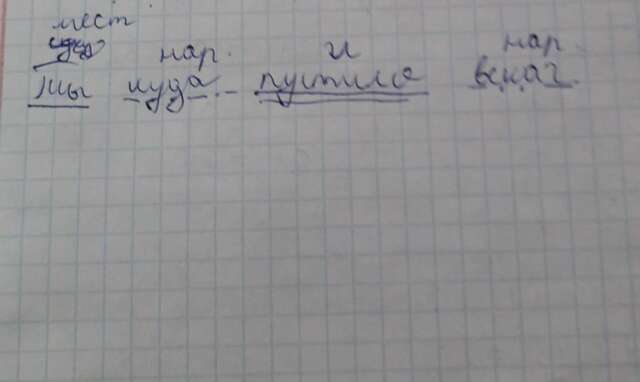 мест
нар. и нар.
Мы куда - пустился вскач.